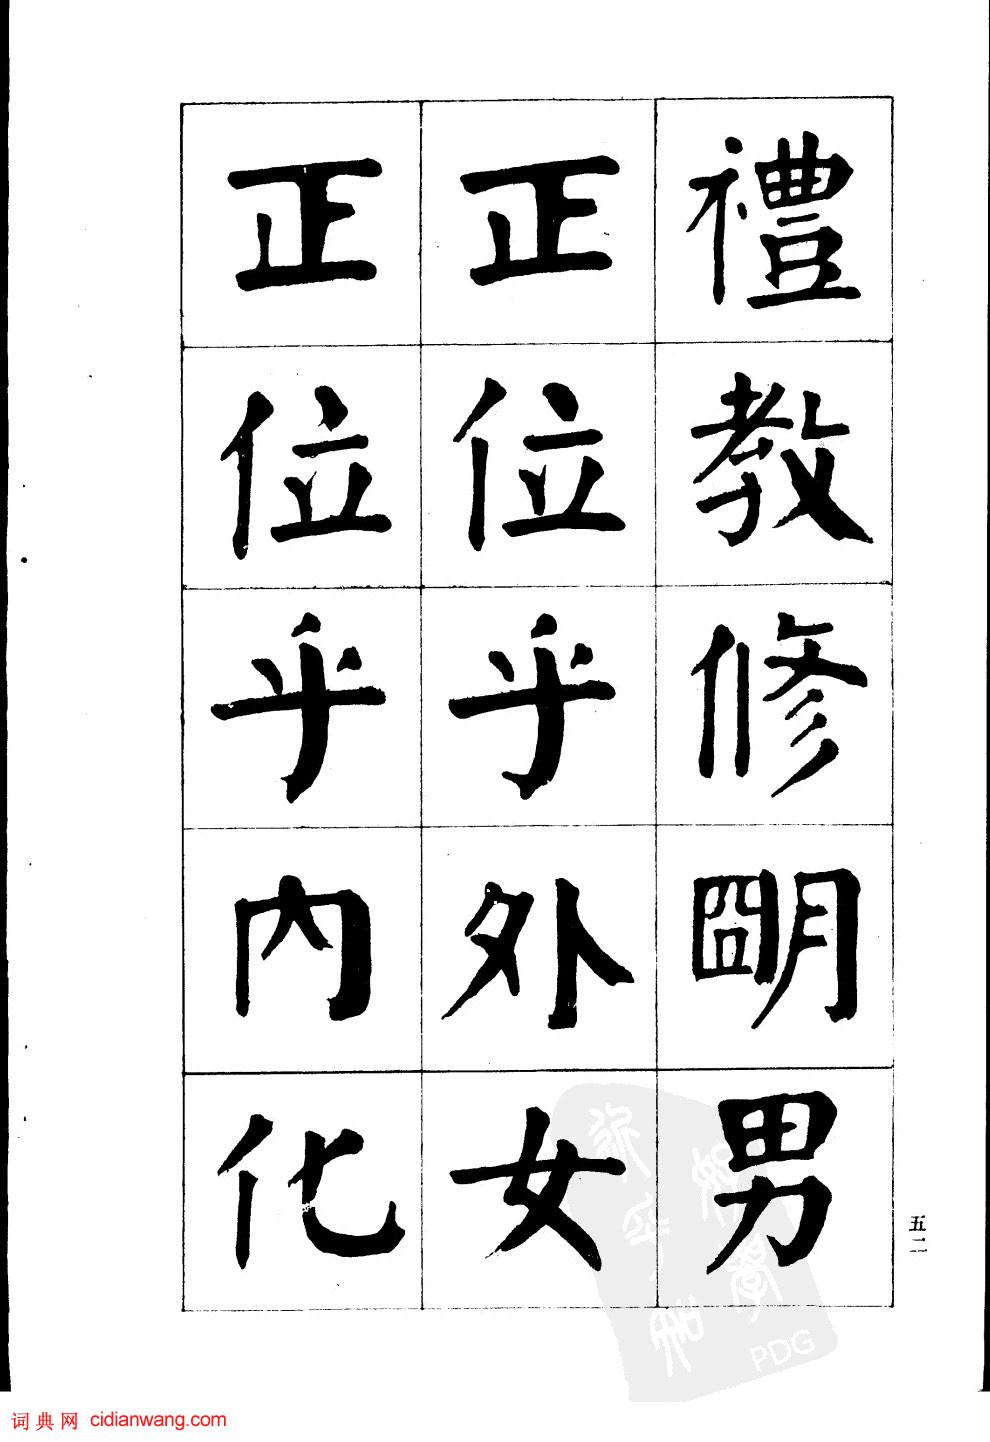 禮教修明男
正位乎外女
正位乎內化
五二
PDG
词典网 cidianwang.com